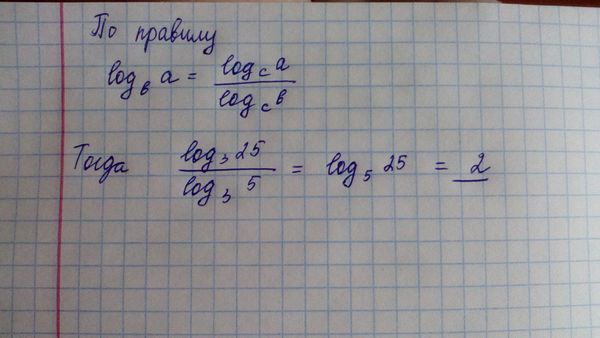 По правилу
log_в a = log_c a / log_c в
Тогда log_3 25 / log_3 5 = log_5 25 = 2